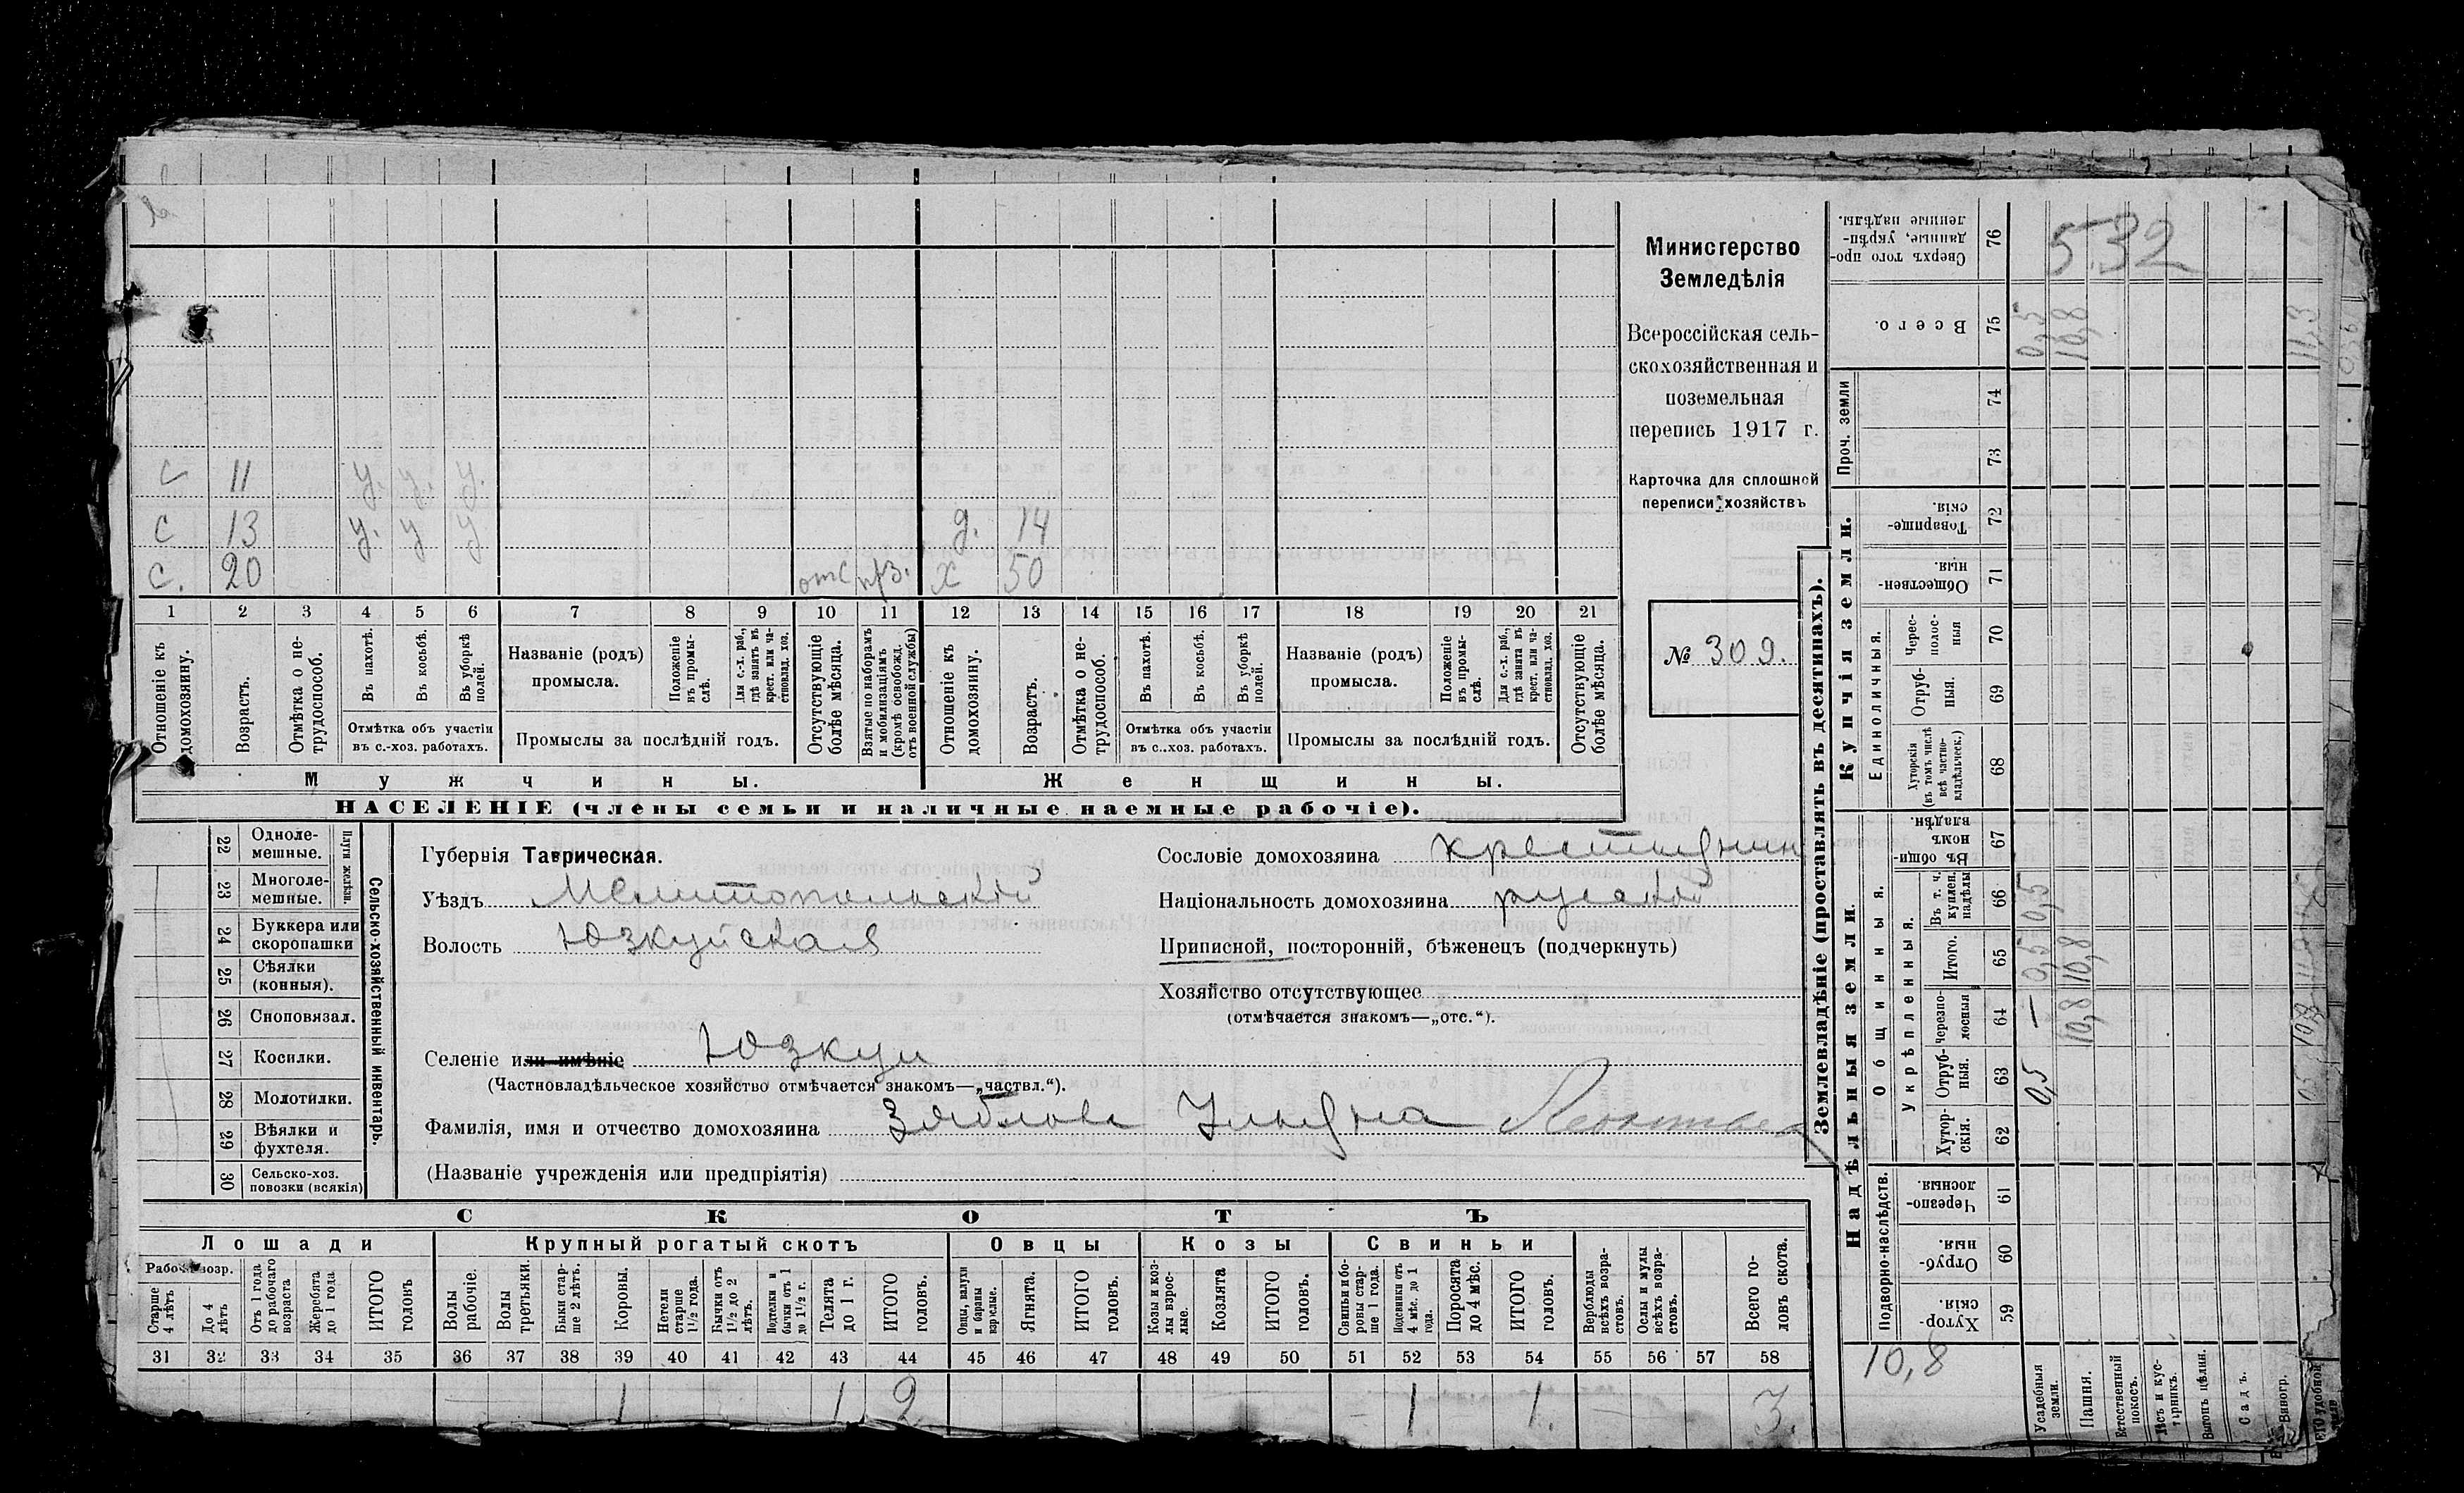 С 11 у. у. у.
С 13 у. у у д. 14
С. 20 отс прз. х 50
1 2 3 4 5 6 7 8 9 10 11 12 13 14 15 16 17 18 19 20 21
Отношеніе къ домохозяину.
Возрастъ.
Отмѣтка о нетрудоспособ.
Въ пахотѣ.
Въ косьбѣ.
Въ уборкѣ полей.
Отмѣтка объ участіи въ с.-хоз. работахъ.
Названіе (родъ) промысла.
Положеніе въ промыслѣ.
Для с.-х. раб., гдѣ занятъ въ крест. или частновлад. хоз.
Промыслы за послѣдній годъ.
Отсутствующіе болѣе мѣсяца.
Взятые по наборамъ и мобилизаціямъ (кромѣ освобожд. отъ военной службы)
Отношеніе къ домохозяину.
Возрастъ.
Отмѣтка о нетрудоспособ.
Въ пахотѣ.
Въ косьбѣ.
Въ уборкѣ полей.
Отмѣтка объ участіи въ с..хоз. работахъ.
Названіе (родъ) промысла.
Положеніе въ промыслѣ.
Для с.-х. раб., гдѣ занята въ крест. или частновлад. хоз.
Промыслы за послѣдній годъ.
Отсутствующіе болѣе мѣсяца.
Мужчины.
Женщины.
НАСЕЛЕНІЕ (члены семьи и наличные наемные рабочіе).
Министерство
Земледѣлія
Всероссійская сель-
скохозяйственная и
поземельная
перепись 1917 г.
Карточка для сплошной
переписи хозяйствъ
№ 309.
22 Одноле-
мешные.
23 Многоле-
мешные.
Плуги желѣзн.
24 Буккера или
скоропашки
25 Сѣялки
(конныя).
26 Сноповязал.
27 Косилки.
28 Молотилки.
29 Вѣялки и
фухтеля.
30 Сельско-хоз.
повозки (всякія)
Сельско-хозяйственный инвентарь.
Губернія Таврическая.
Уѣздъ Мелитопольскій
Волость Юзкуйская
Сословіе домохозяина крестьянин
Національность домохозяина русскій
Приписной, посторонній, бѣженецъ (подчеркнуть)
Хозяйство отсутствующее
(отмѣчается знакомъ—„отс.“).
Селеніе или имѣніе Юзкуи
(Частновладѣльческое хозяйство отмѣчается знакомъ—„частвл.“).
Фамилія, имя и отчество домохозяина
(Названіе учрежденія или предпріятія)
СКОТЪ
Лошади
Крупный рогатый скотъ
Овцы
Козы
Свиньи
Рабоч. возр.
Старше 4 лѣтъ
До 4 лѣтъ
Отъ 1 года до рабочаго возраста
Жеребята до 1 года
ИТОГО головъ
Волы рабочіе.
Волы третьяки.
Быки старше 2 лѣтъ.
Коровы.
Нетели старше 1½ года.
Бычки отъ 1½ до 2 лѣтъ.
Подтелки и бычки отъ 1 до 1½ г.
Телята до 1 г.
ИТОГО головъ.
Овцы, валухи и бараны взрослые.
Ягнята.
ИТОГО головъ.
Козы и козлы взрослые.
Козлята
ИТОГО головъ.
Свиньи и боровы старше 1 года.
Подсвинки отъ 4 мѣс. до 1 года.
Поросята до 4 мѣс.
ИТОГО головъ.
Верблюды всѣхъ возрастовъ.
Ослы и мулы всѣхъ возрастовъ.
Всего головъ скота.
31 32 33 34 35 36 37 38 39 40 41 42 43 44 45 46 47 48 49 50 51 52 53 54 55 56 57 58
1 1 2 1 1. 3.
Землевладѣніе (проставлять въ десятинахъ).
Надѣльныя земли
Купчія земли.
Проч. земли
Подворно-наслѣдств.
Общинныя.
Укрѣпленныя.
Единоличныя.
Сверхъ того проданные, укрѣпленные надѣлы. 76
532
Всего. 75 0,5 10,8 11,3
74
73
Товарищескія. 72
Общественныя. 71
Чересполосныя 70
Отрубныя. 69
Хуторскія (въ томъ числѣ всѣ частновладѣльческ.) 68
Въ общинномъ владѣн. 67
Въ т. ч. куплен. надѣлы 66 0,5
Итого. 65 0,5 10,8
Черезполосныя 64 — 10,8 10,8
Отрубныя. 63 0,5
Хуторскія. 62
Черезполосныя. 61
Отрубныя. 60
Хуторскія. 59
10,8
Усадебныя земли.
Пашня.
Естественный покосъ.
Лѣсъ и кустарникъ.
Выгонъ цѣлин.
Садъ.
Виногр.